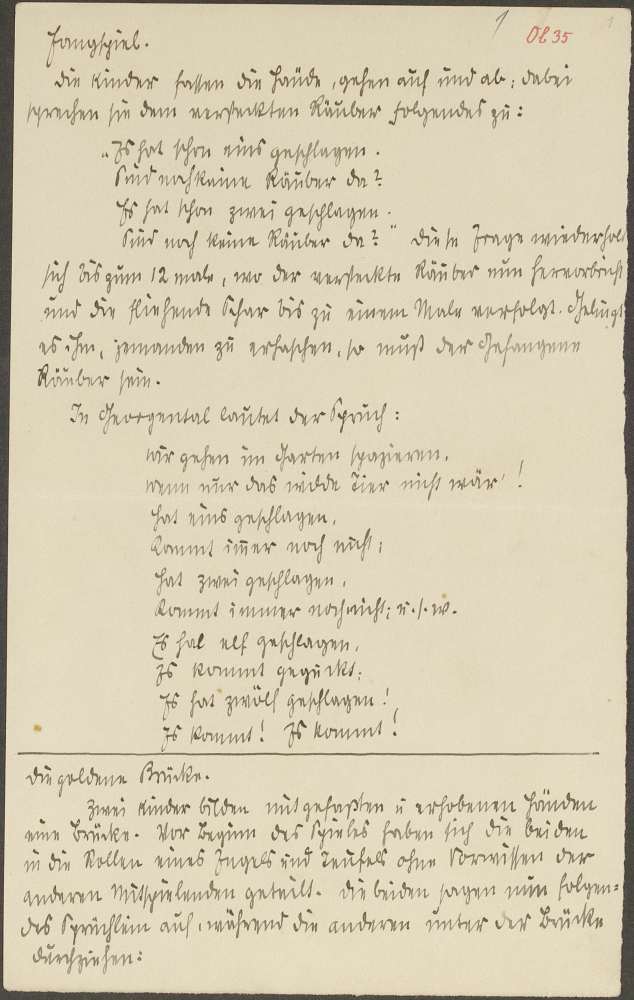 1 Ob 35 1
Fangspiel.
Die Kinder fassen die Hände, gehen auf und ab; dabei
sprechen sie dem versteckten Räuber folgendes zu:
„Es hat schon eins geschlagen.
Sind noch keine Räuber da?
Es hat schon zwei geschlagen.
Sind noch keine Räuber da?" Diese Frage wiederholt
sich bis zum 12 male, wo der versteckte Räuber nun hervorbricht
und die fliehende Schar bis zu einem Male verfolgt. Gelingt
es ihm, jemanden zu erhaschen, so muß der Gefangene
Räuber sein.
In Georgental lautet der Spruch:
Wir gehen im Garten spazieren,
wenn nur das wilde Tier nicht wär'!
Hat eins geschlagen,
Kommt immer noch nicht;
Hat zwei geschlagen,
Kommt immer noch nicht; u.s.w.
Es hat elf geschlagen,
Es kommt geguckt;
Es hat zwölf geschlagen!
Es kommt! Es kommt!
Die goldene Brücke.
Zwei Kinder bilden mit gefaßten u erhobenen Händen
eine Brücke. Vor Beginn des Spieles haben sich die beiden
in die Rollen eines Engels und Teufels ohne Vorwissen der
anderen Mitspielenden geteilt. Die beiden sagen nun folgen=
des Sprüchlein auf, während die anderen unter der Brücke
durchziehen: